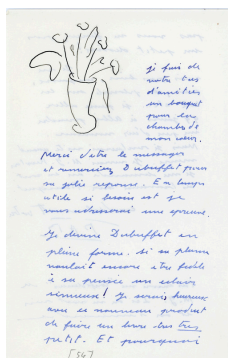 je fais de
votre tas
d'amitiés
un bouquet
pour la
chambre de
mon cœur.
Merci d'être le messager
et remerciez Dubuffet pour
sa jolie réponse. En temps
utile si besoin est je
vous adresserai une épreuve.
Je devine Dubuffet en
pleine forme. Si sa plume
voulait encore être fidèle
à sa pensée un éclair
sinueuse! Je serais heureux
avec ce nouveau produit
de faire un livre du très
petit. Et pourquoi
[56]